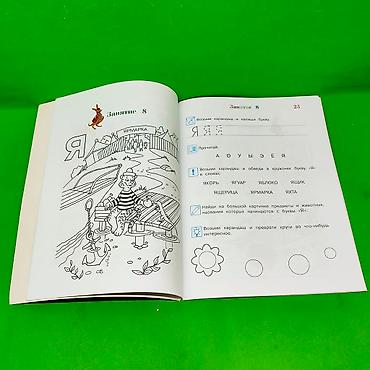 Занятие 8
Я
ЯРМАРКА
Занятие 8
23
Возьми карандаш и напиши букву.
Я Я Я
Прочитай.
А О У Ы Э Ё Я
Возьми карандаш и обведи в кружочек букву «Я»
в словах.
ЯКОРЬ ЯГУАР ЯБЛОКО ЯЩИК
ЯЩЕРИЦА ЯРМАРКА ЯХТА
Найди на большой картинке предметы и животных,
названия которых начинаются с буквы «Я».
Возьми карандаш и преврати круги во что-нибудь
интересное.